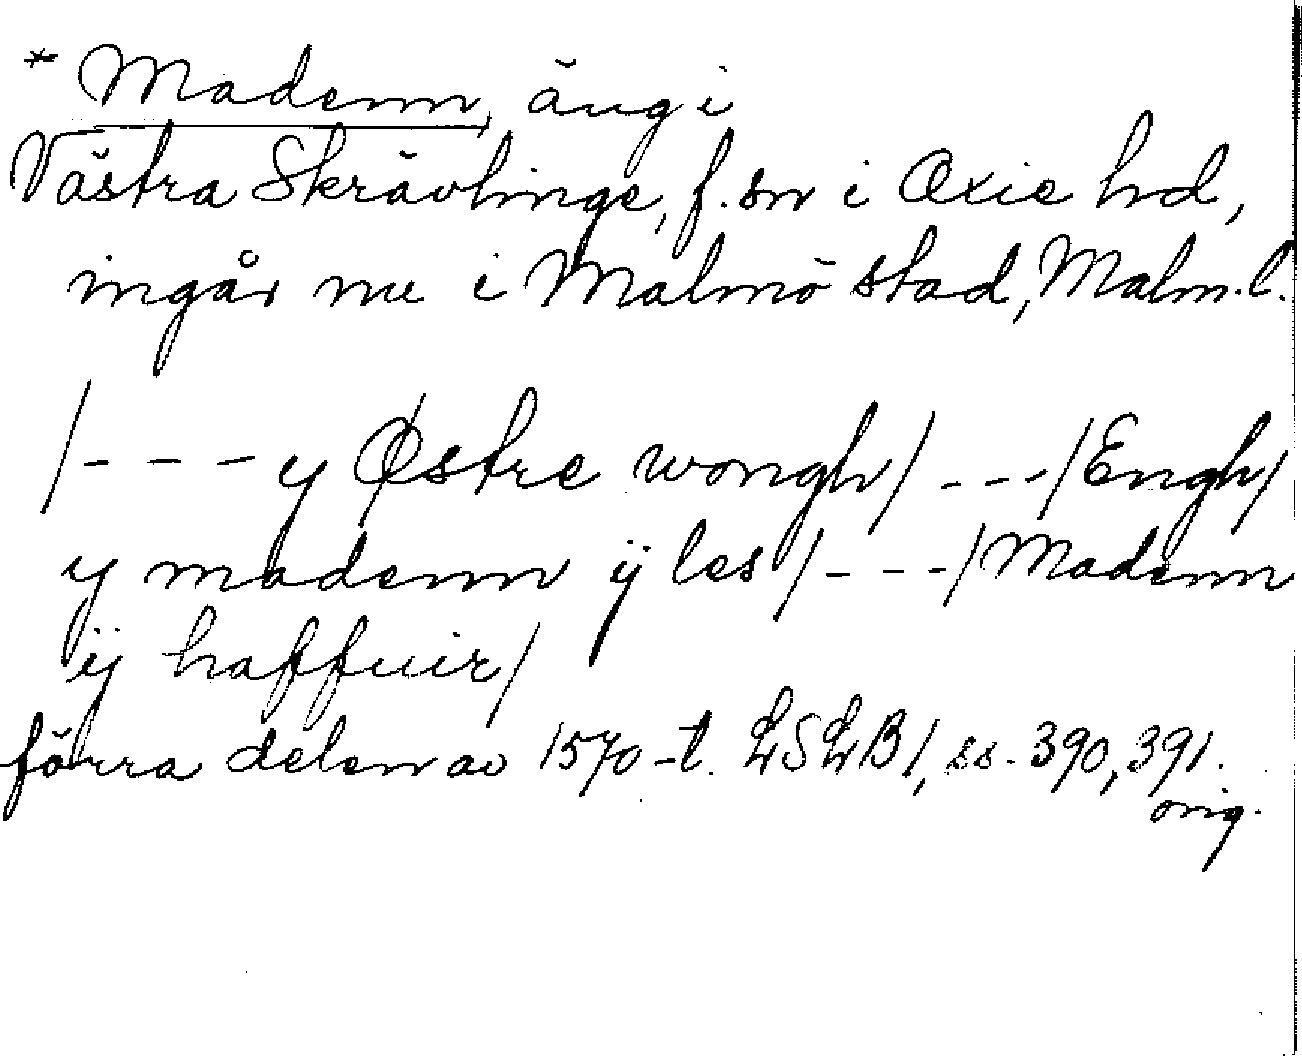 * Madenn, äng i
Västra Skrävlinge, f. sn i Oxie hd,
ingår nu i Malmö stad, Malm. l.
/- - - y Østre wongh/ - - -/Engh/
y madenn ÿ les/- - -/Madenn
ÿ haffuir/
förra delen av 1570-t. LSLB1, ss. 390, 391.
orig.